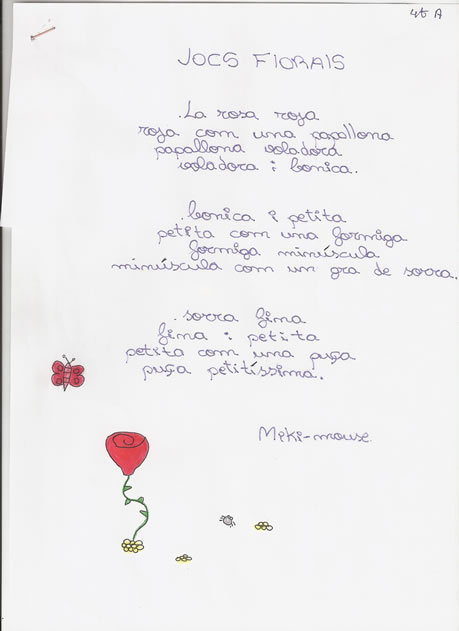 4t A
JOCS FlORAlS
.La rosa roja
roja com una papallona
papallona voladora
voladora i bonica.
.bonica i petita
petita com una formiga
formiga minúscula
minúscula com un gra de sorra.
.sorra fina
fina i petita
petita com una puça
puça petitíssima.
Miki-mouse.